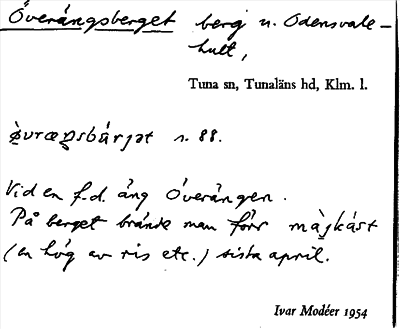 Överängsberget berg n. Odensvale-
hult,
Tuna sn, Tunaläns hd, Klm. l.
s. 88.
Vid en f.d. äng Överängen.
På berget brände man förr màjkást
(en hög av ris etc.) sista april.
Ivar Modéer 1954